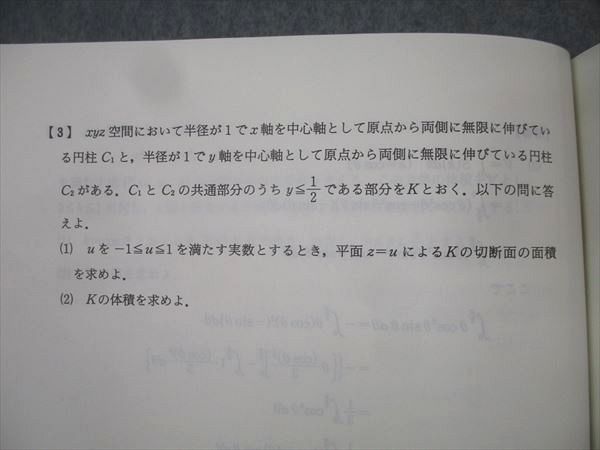 【3】 xyz空間において半径が1でx軸を中心軸として原点から両側に無限に伸びてい
る円柱C₁と，半径が1でy軸を中心軸として原点から両側に無限に伸びている円柱
C₂がある．C₁とC₂の共通部分のうちy≦1/2である部分をKとおく．以下の問に答
えよ．
(1) uを−1≦u≦1を満たす実数とするとき，平面z=uによるKの切断面の面積
を求めよ．
(2) Kの体積を求めよ．